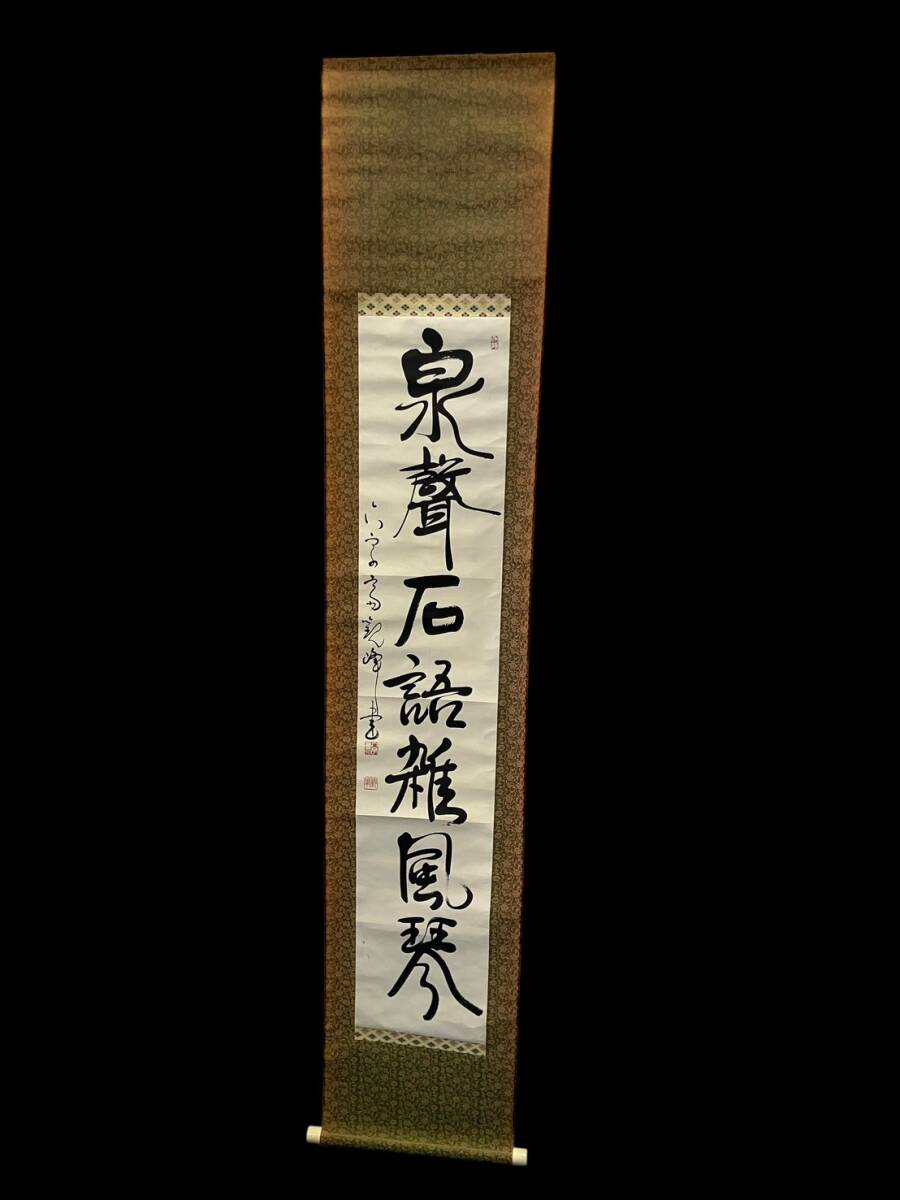 泉聲石語雜風琴
観峰書